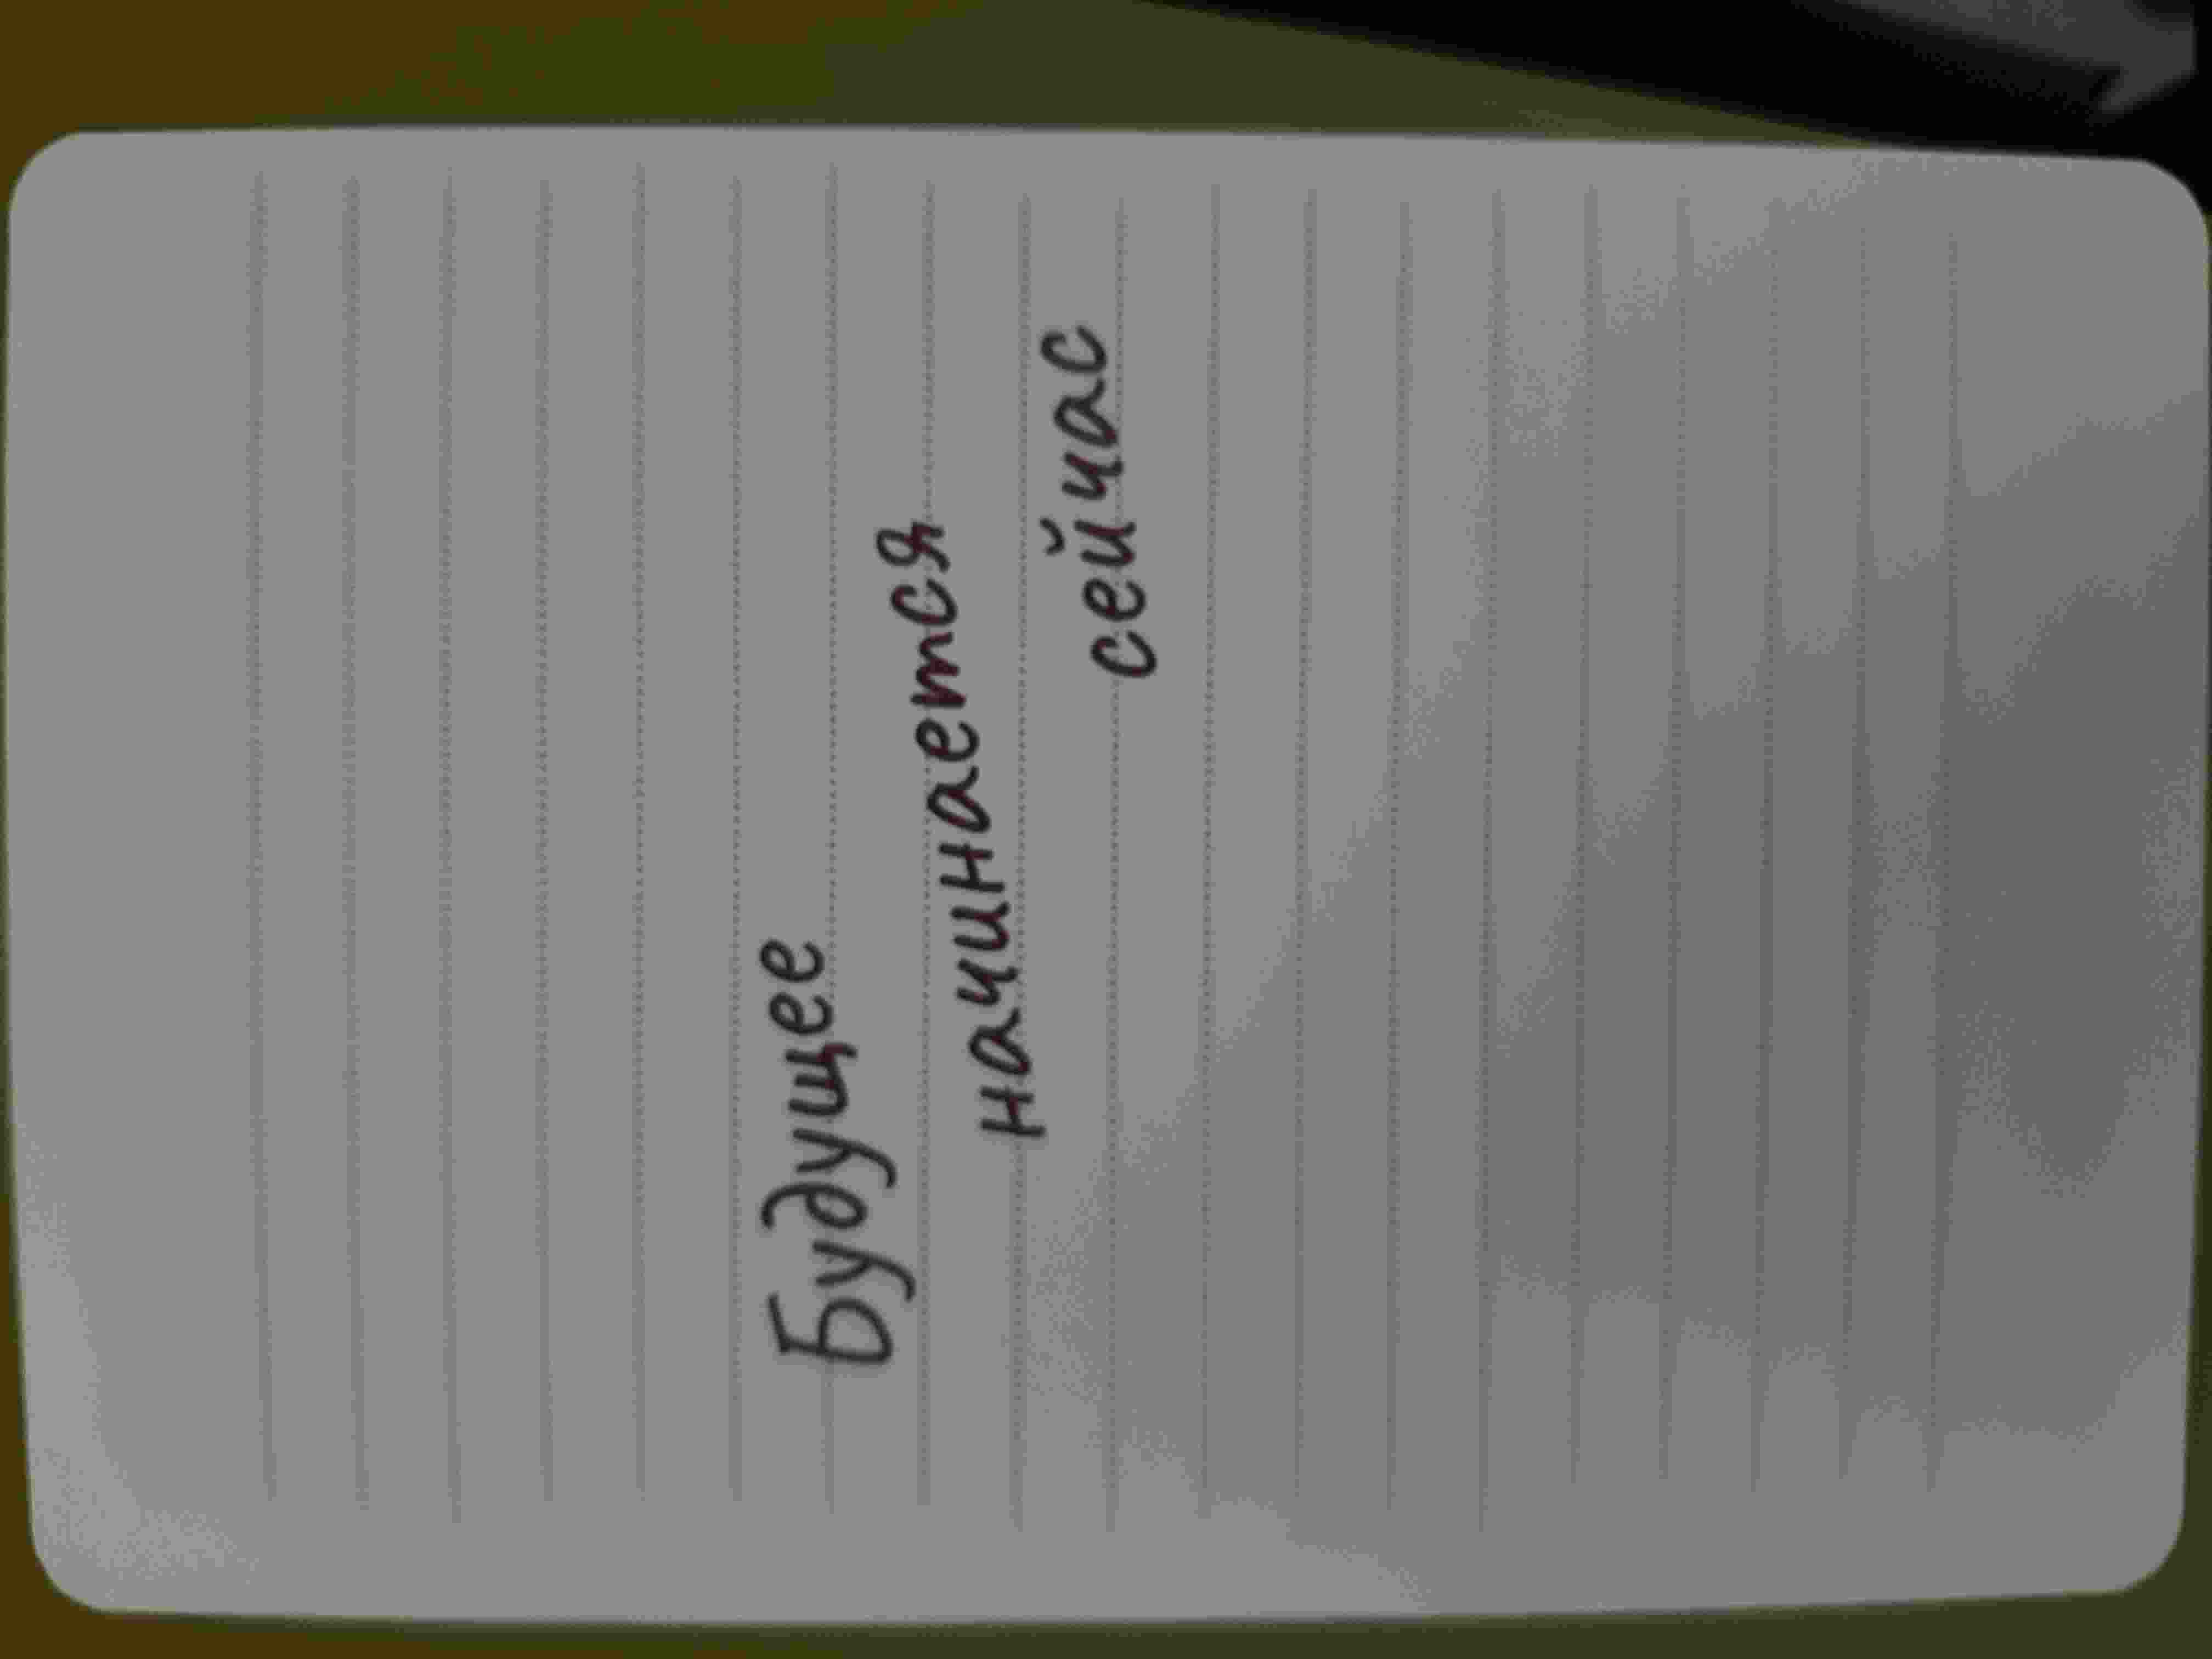 Будущее
начинается
сейчас